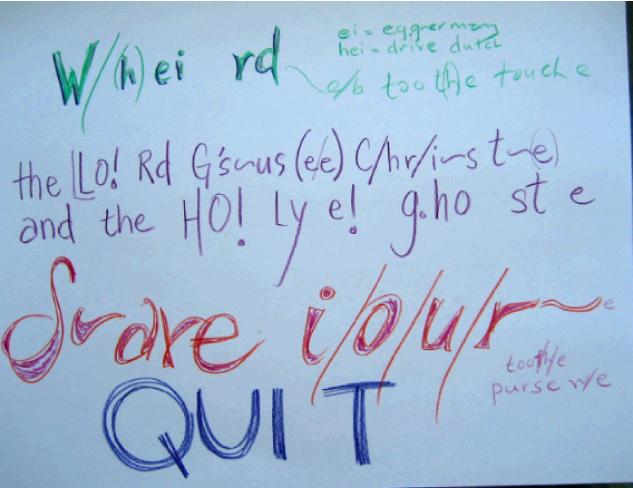 W/(h) ei rd
ei = eggnermany
hei = drive dutch
e/b too(t)he touch e
the [LO! Rd G's~us (e/e) C/hr/i~s t~(e)
and the HO! Ly e! g.ho st e
i/o/u/r~e
toot/h/e
purse r/e
QUIT